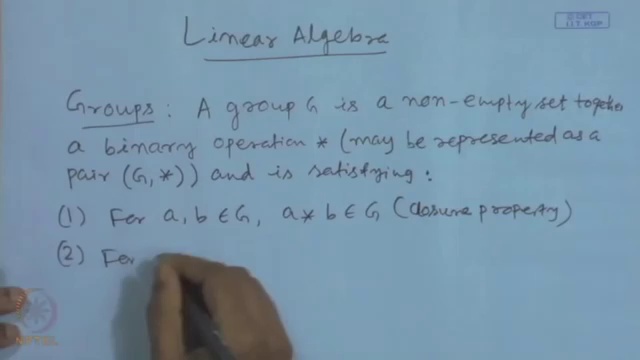 Linear Algebra
Groups: A group G is a non-empty set together
a binary operation * (may be represented as a
pair (G, *)) and is satisfying:
(1) For a, b ∈ G, a * b ∈ G (closure property)
(2) For
NPTEL